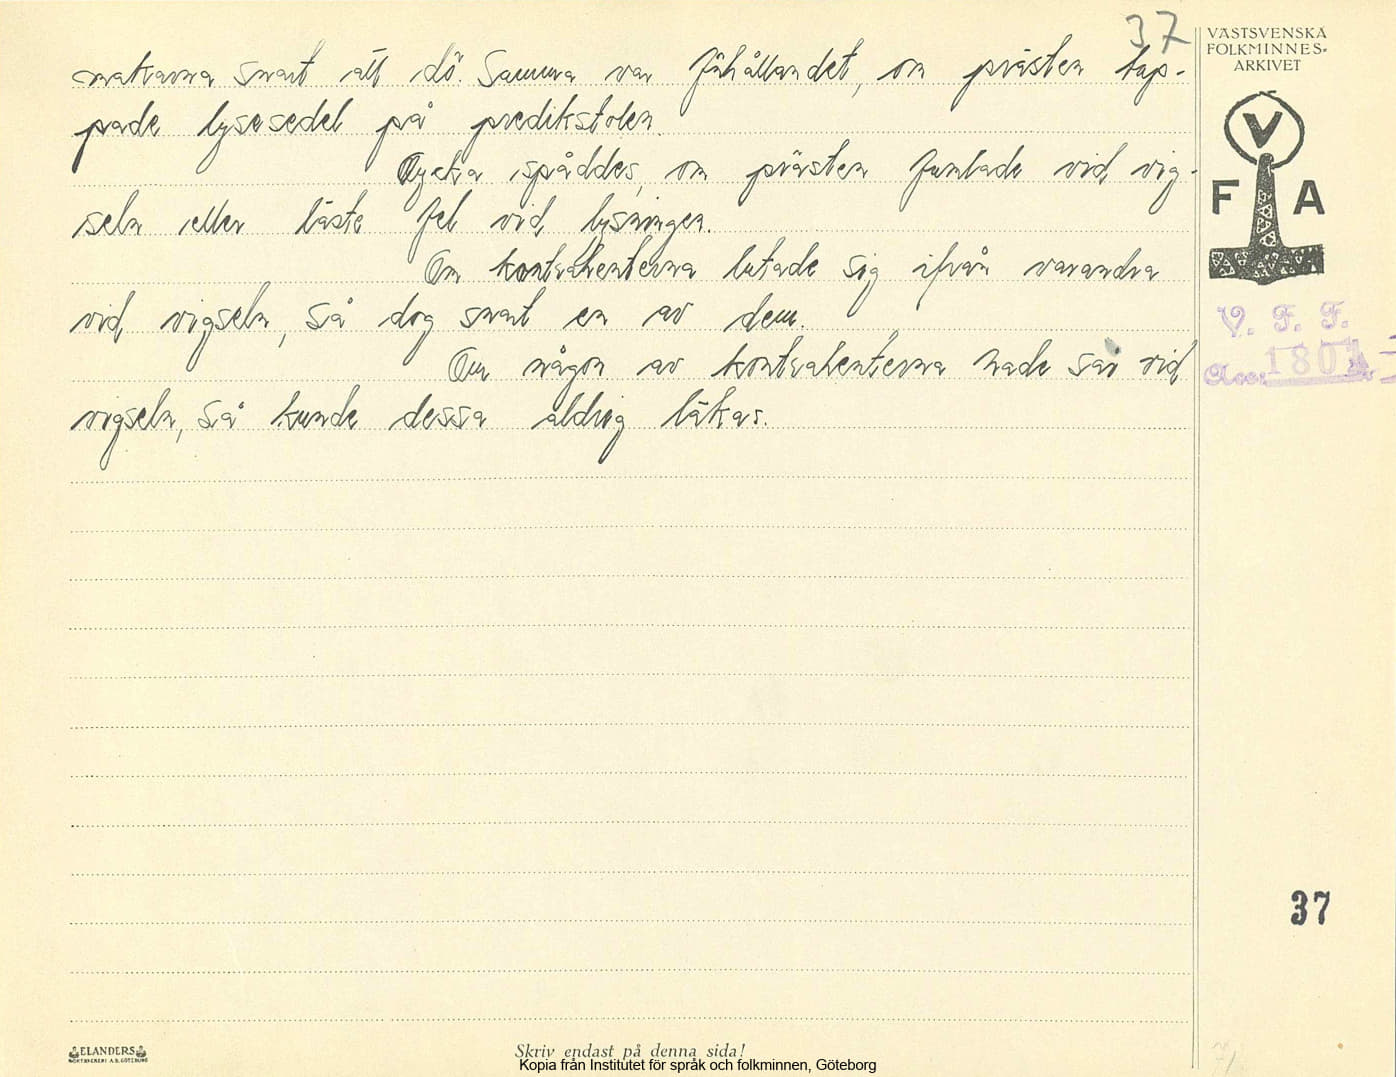 37
makarna snart att dö. Samma var förhållandet, om prästen tap-
pade lysesedel på predikstolen.
Olycka spåddes, om prästen fumlade vid vig-
seln eller läste fel vid lysningen.
Om kontrahenterna lutade sig ifrån varandra
vid vigseln, så dog snart en av dem.
Om någon av kontrahenterna hade sår vid
vigseln, så kunde dessa aldrig läkas.
VÄSTSVENSKA
FOLKMINNES-
ARKIVET
V
F A
V. F. F.
Acc. 1801
37
ELANDERS
Skriv endast på denna sida!
Kopia från Institutet för språk och folkminnen, Göteborg